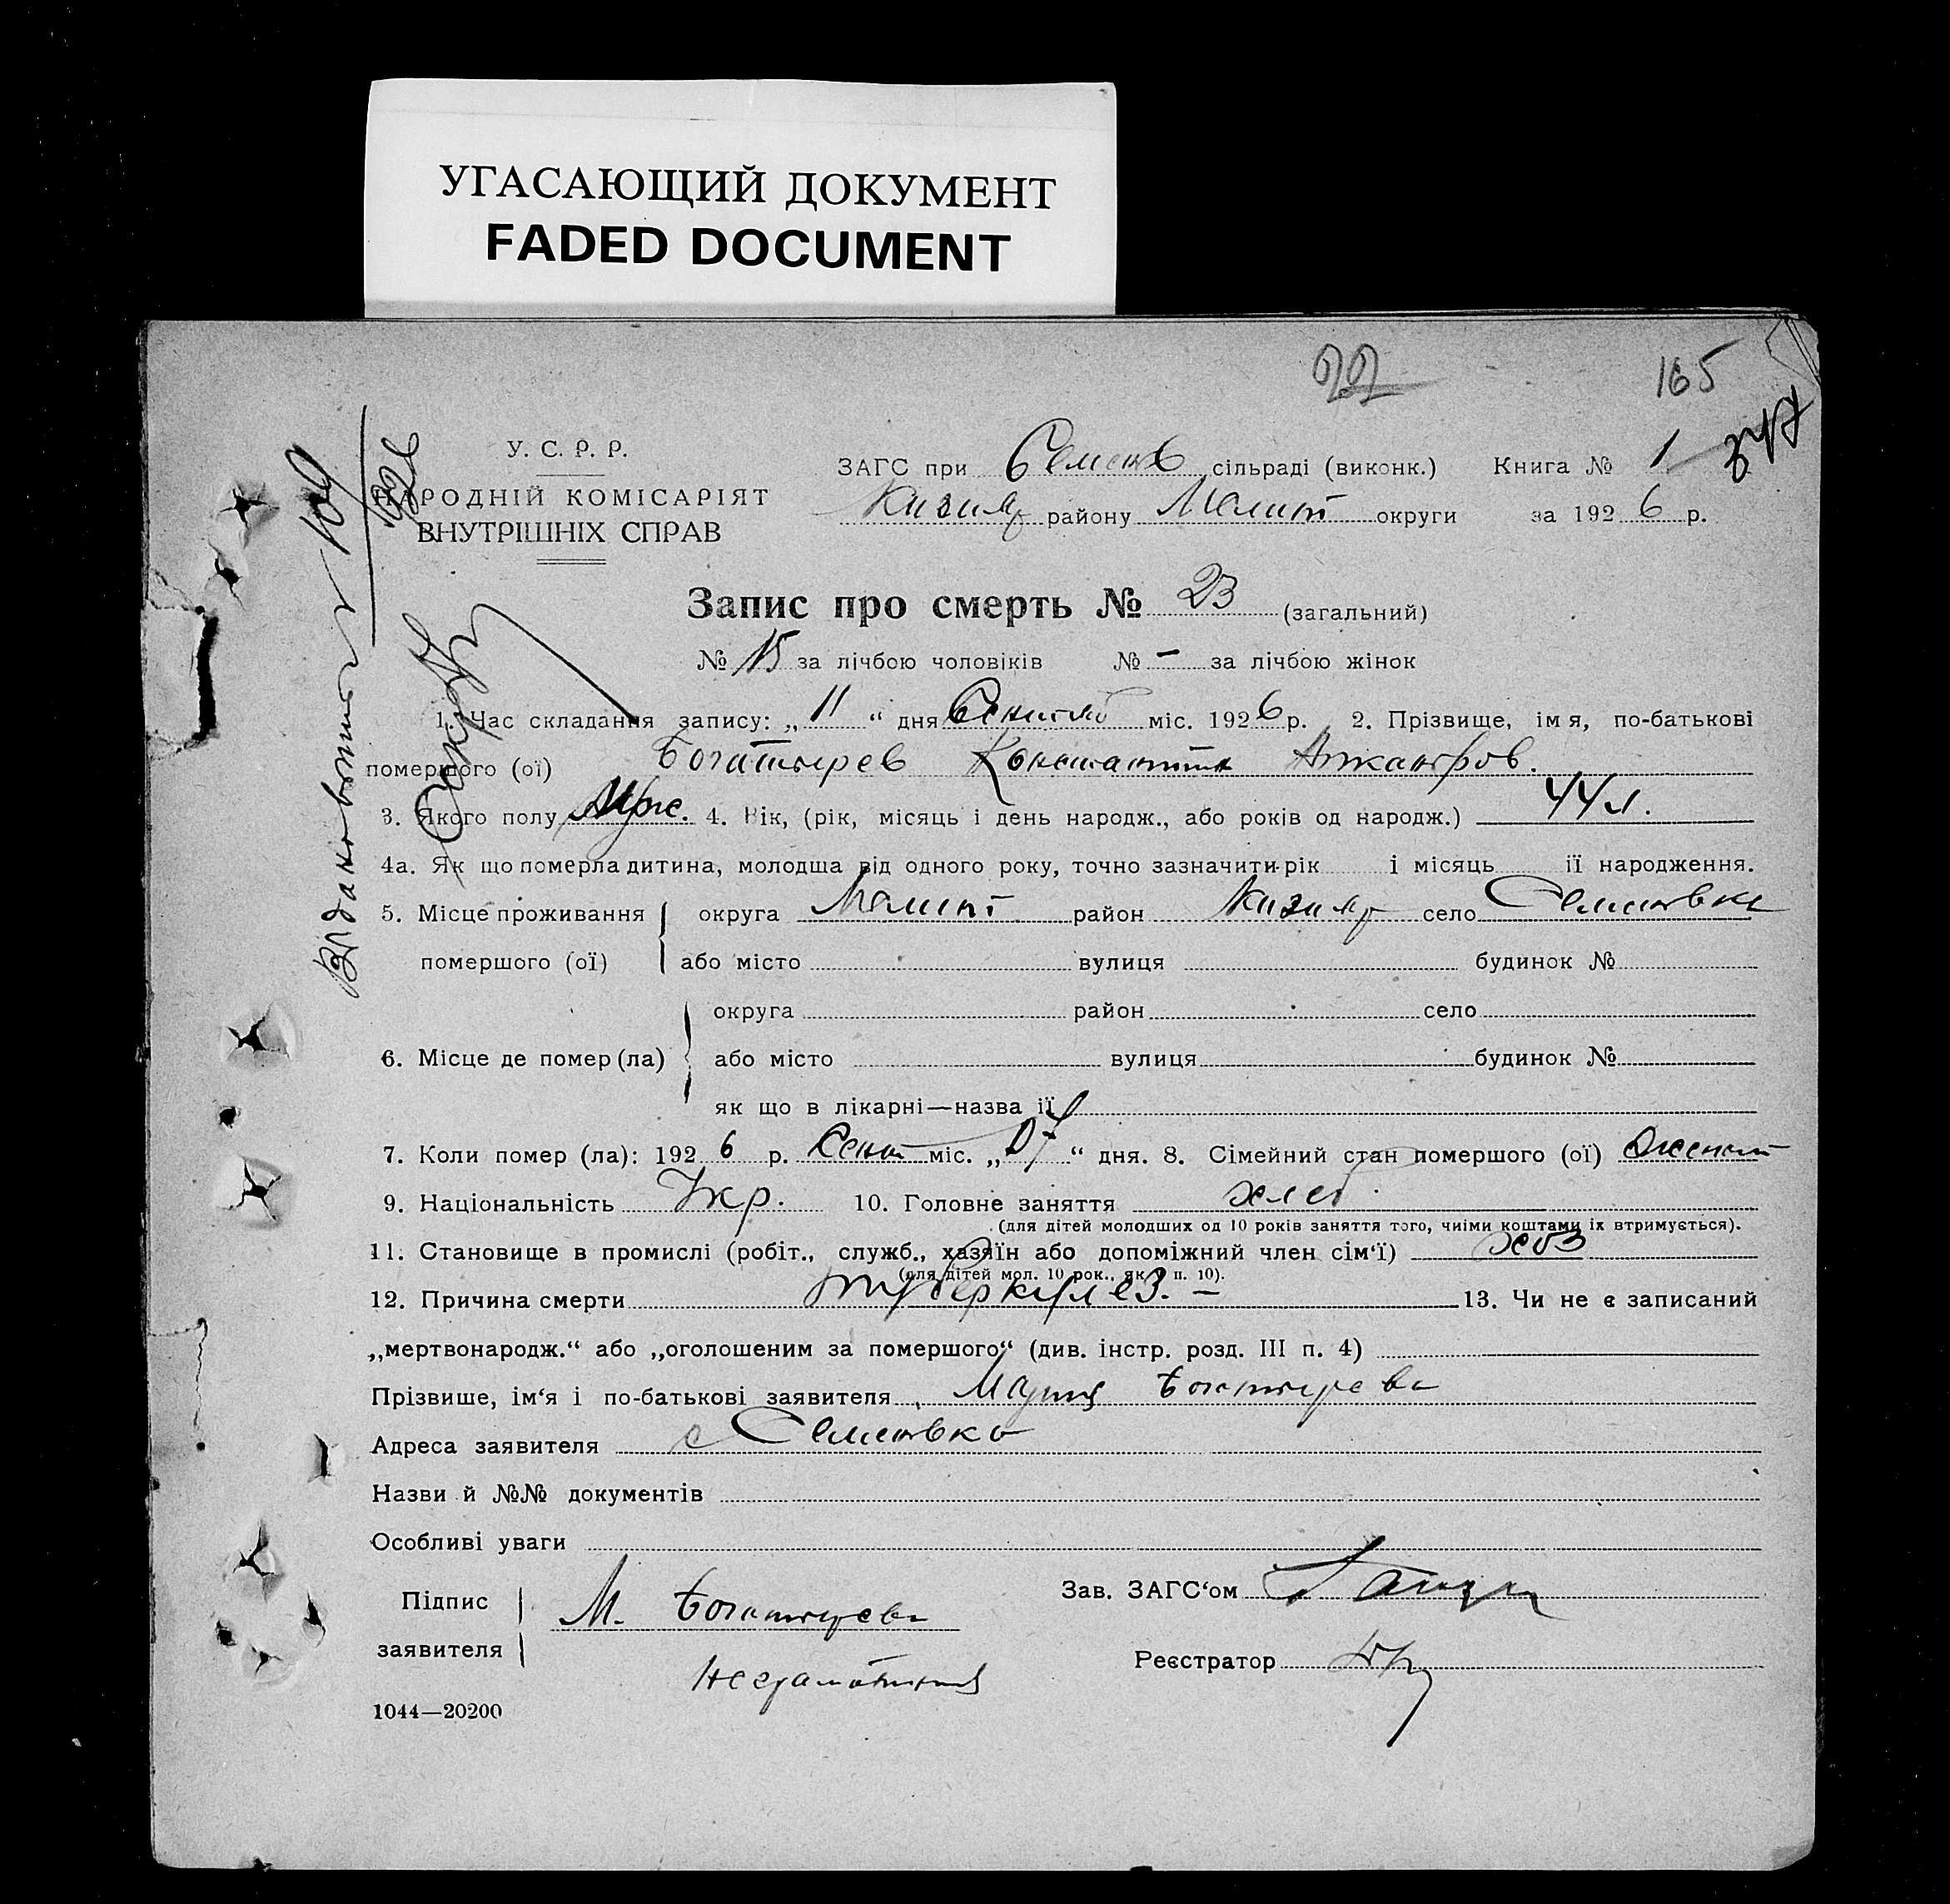 УГАСАЮЩИЙ ДОКУМЕНТ
FADED DOCUMENT
22
165
У. С. Р. Р.
НАРОДНІЙ КОМІСАРІЯТ
ВНУТРІШНІХ СПРАВ
ЗАГС при Семенов сільраді (виконк.) Книга № 1
Кизияр району Мелит округи за 1926 р.
Запис про смерть № 23 (загальний)
№ 15 за лічбою чоловіків № – за лічбою жінок
1. Час складання запису: „11“ дня Сентяб міс. 1926 р. 2. Прізвище, імя, по-батькові
помершого (ої) Богатырев Константин
3. Якого полу Муж. 4. Вік, (рік, місяць і день народж., або років од народж.) 44 л.
4а. Як що померла дитина, молодша від одного року, точно зазначити рік і місяць її народження.
5. Місце проживання округа Мелит район Кизияр село Семеновка
помершого (ої) або місто вулиця будинок №
округа район село
6. Місце де помер (ла) або місто вулиця будинок №
як що в лікарні—назва її
7. Коли помер (ла): 1926 р. Сент міс. „07“ дня. 8. Сімейний стан помершого (ої) женат
9. Національність Укр. 10. Головне заняття хлеб.
(для дітей молодших од 10 років заняття того, чиїми коштами їх втримується).
11. Становище в промислі (робіт., служб., хазяїн або допоміжний член сім'ї) хоз
(для дітей мол. 10 рок., як у п. 10).
12. Причина смерти туберкулез. – 13. Чи не є записаний
„мертвонародж.“ або „оголошеним за помершого“ (див. інстр. розд. III п. 4)
Прізвише, ім'я і по-батькові заявителя Мария Богатырева
Адреса заявителя с Семеновка
Назви й №№ документів
Особливі уваги
Підпис
заявителя
М. Богатырева
Неграмотная
Зав. ЗАГС'ом
Реєстратор
1044—20200